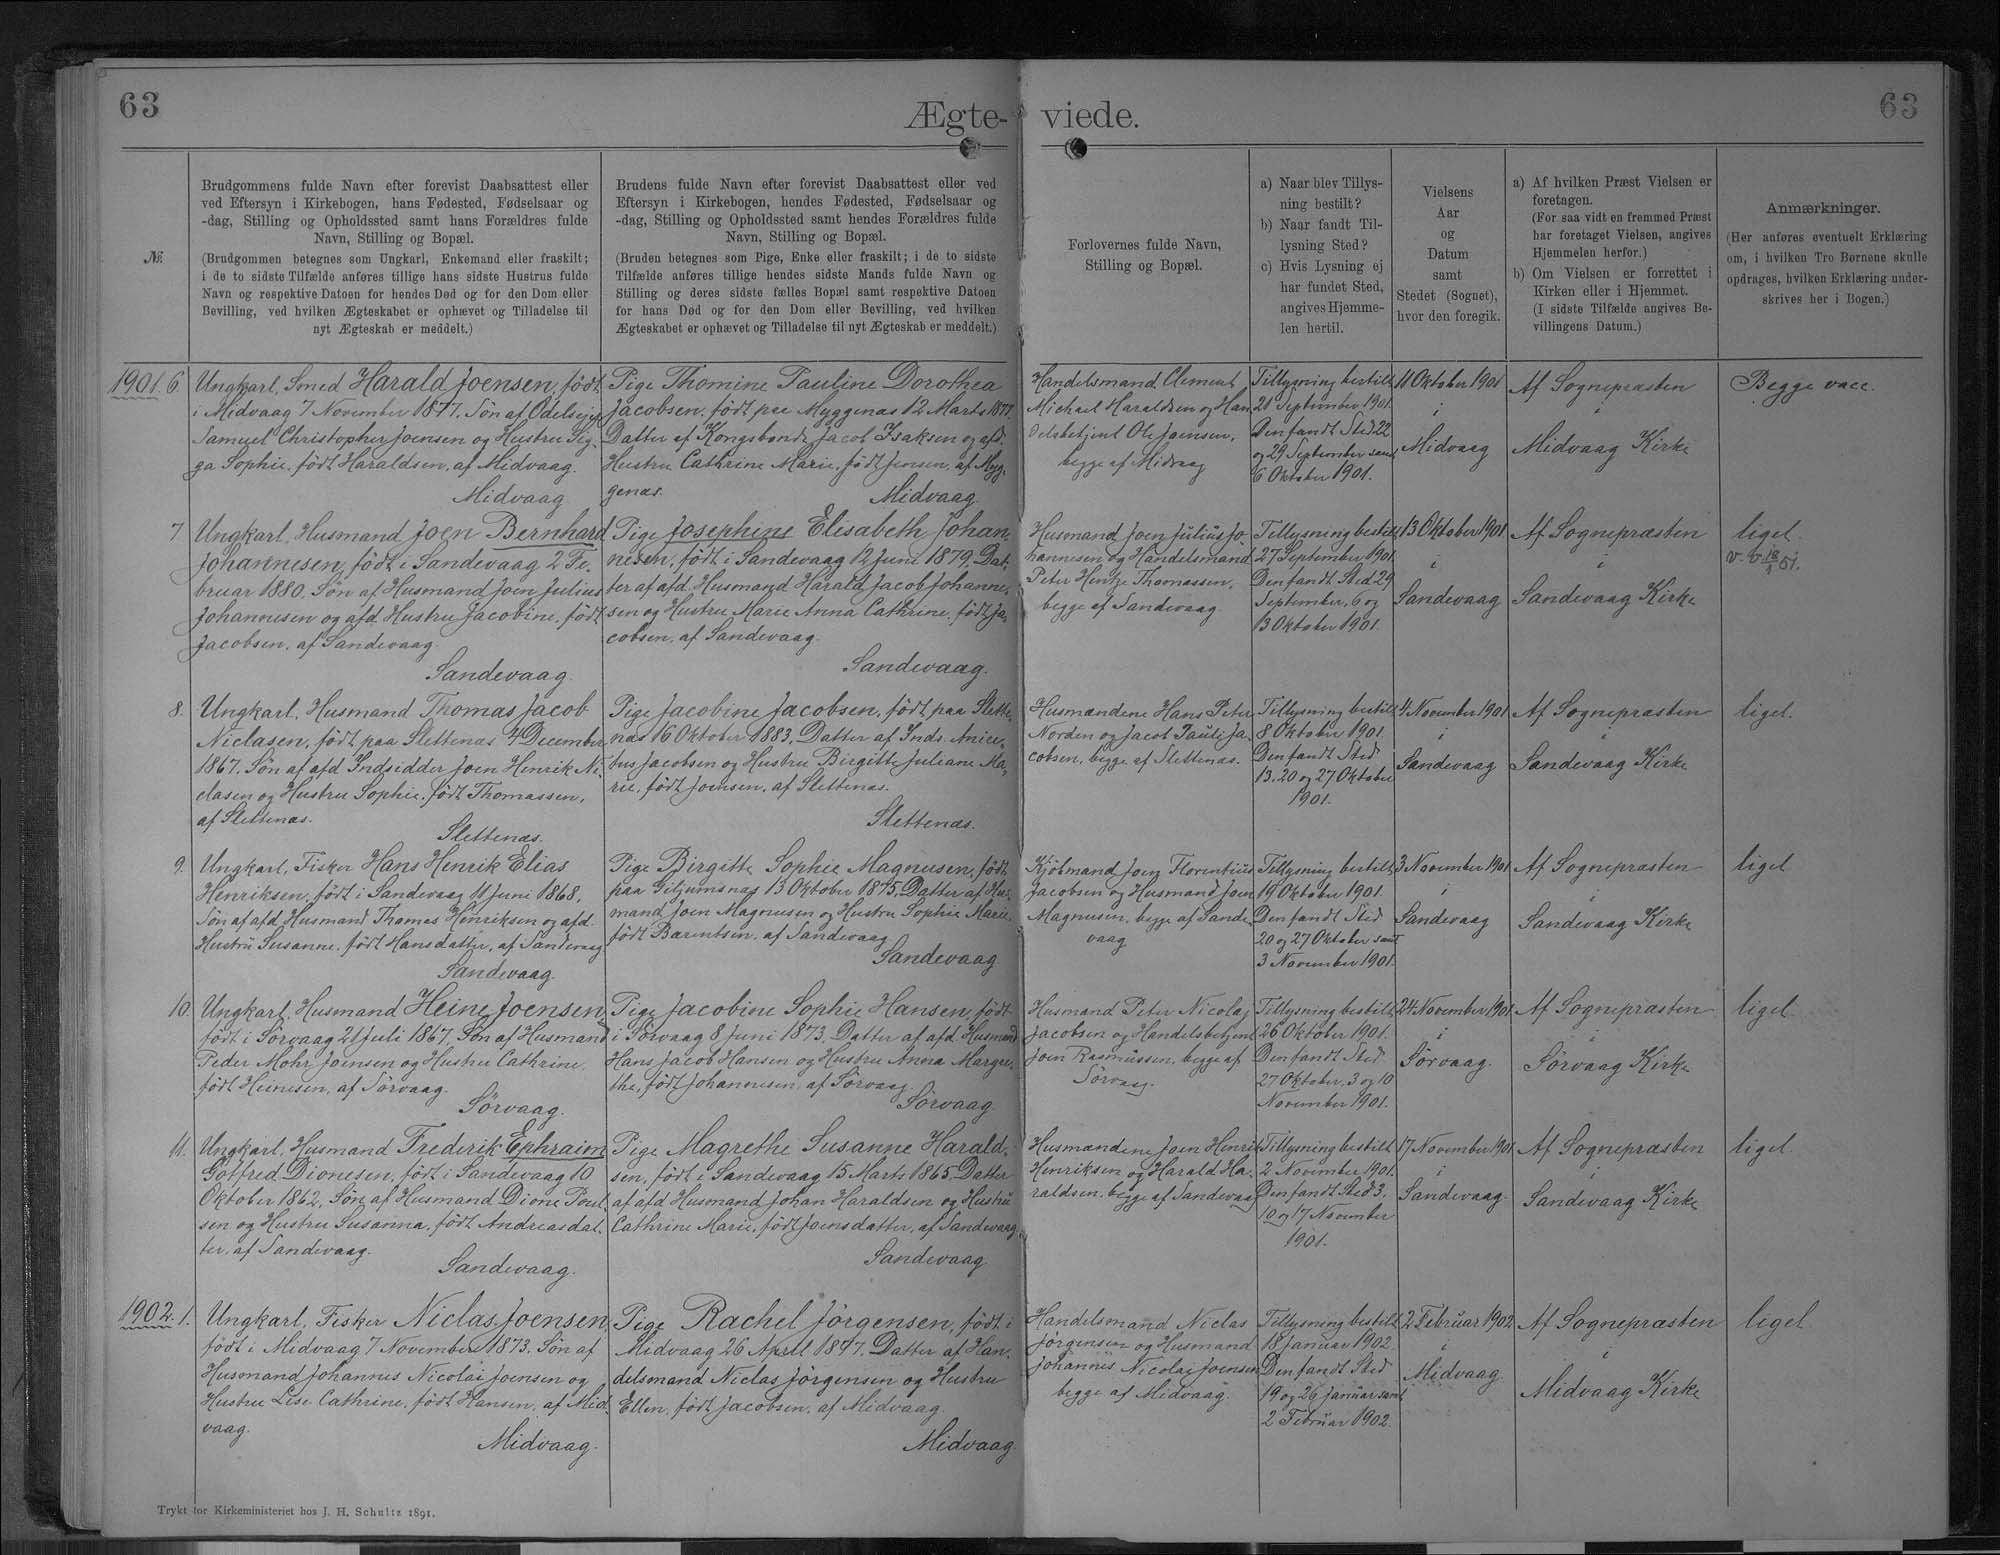 63
Ægte-
viede.
63
№
Brudgommens fulde Navn efter forevist Daabsattest eller
ved Eftersyn i Kirkebogen, hans Fødested, Fødselsaar og
-dag, Stilling og Opholdssted samt hans Forældres fulde
Navn, Stilling og Bopæl.
(Brudgommen betegnes som Ungkarl, Enkemand eller fraskilt;
i de to sidste Tilfælde anføres tillige hans sidste Hustrus fulde
Navn og respektive Datoen for hendes Død og for den Dom eller
Bevilling, ved hvilken Ægteskabet er ophævet og Tilladelse til
nyt Ægteskab er meddelt.)
Brudens fulde Navn efter forevist Daabsattest eller ved
Eftersyn i Kirkebogen, hendes Fødested, Fødselsaar og
-dag, Stilling og Opholdssted samt hendes Forældres fulde
Navn, Stilling og Bopæl.
(Bruden betegnes som Pige, Enke eller fraskilt; i de to sidste
Tilfælde anføres tillige hendes sidste Mands fulde Navn og
Stilling og deres sidste fælles Bopæl samt respektive Datoen
for hans Død og for den Dom eller Bevilling, ved hvilken
Ægteskabet er ophævet og Tilladelse til nyt Ægteskab er meddelt.)
Forlovernes fulde Navn,
Stilling og Bopæl.
a) Naar blev Tillys-
ning bestilt?
b) Naar fandt Til-
lysning Sted?
c) Hvis Lysning ej
har fundet Sted,
angives Hjemme-
len hertil.
Vielsens
Aar
og
Datum
samt
Stedet (Sognet),
hvor den foregik.
a) Af hvilken Præst Vielsen er
foretagen.
(For saa vidt en fremmed Præst
har foretaget Vielsen, angives
Hjemmelen herfor.)
b) Om Vielsen er forrettet i
Kirken eller i Hjemmet.
(I sidste Tilfælde angives Be-
villingens Datum.)
Anmærkninger.
(Her anføres eventuelt Erklæring
om, i hvilken Tro Børnene skulle
opdrages, hvilken Erklæring under-
skrives her i Bogen.)
1901. 6.
Ungkarl, Smed Harald Joensen, født
i Midvaag 7 November 1877. Søn af Odelsejer
Samuel Christopher Joensen og Hustru Sig-
ga Sophie, født Haraldsen, af Midvaag.
Midvaag
Pige Thomine Pauline Dorothea
Jacobsen, født paa Myggenæs 12 Marts 1877.
Datter af Kongsbonde Jacob Isaksen og afd.
Hustru Cathrine Marie, født Jensen, af Myg-
genæs.
Midvaag
Handelsmand Clement
Michael Haraldsen og Han-
delsbetjent Ole Joensen,
begge af Midvaag
Tillysning bestilt
21 September 1901.
Den fandt Sted 22
og 29 September samt
6 Oktober 1901.
11 Oktober 1901
i
Midvaag
Af Sognepræsten
i
Midvaag Kirke
Begge vacc.
7.
Ungkarl, Husmand Joen Bernhard
Johannesen, født i Sandevaag 2 Fe-
bruar 1880. Søn af Husmand Joen Julius
Johannesen og afd. Hustru Jacobine, født
Jacobsen, af Sandevaag.
Sandevaag.
Pige Josephine Elisabeth Johan-
nesen, født i Sandevaag 12 Juni 1879. Dat-
ter af afd. Husmand Harald Jacob Johanne-
sen og Hustru Marie Anna Cathrine, født Ja-
cobsen, af Sandevaag.
Sandevaag.
Husmand Joen Julius Jo-
hannesen og Handelsmand
Peter Hentze Thomassen,
begge af Sandevaag
Tillysning bestilt
27 September 1901.
Den fandt Sted 29
September, 6 og
13 Oktober 1901.
13 Oktober 1901
i
Sandevaag
Af Sognepræsten
i
Sandevaag Kirke
ligel.
8.
Ungkarl, Husmand Thomas Jacob
Niclasen, født paa Slettenæs 4 December
1867. Søn af afd Indsidder Joen Henrik Ni-
clasen og Hustru Sophie, født Thomassen,
af Slettenæs.
Slettenæs.
Pige Jacobine Jacobsen, født paa Slette-
næs 16 Oktober 1883. Datter af Inds. Anice-
tus Jacobsen og Hustru Birgitte Juliane Ma-
rie, født Joensen, af Slettenæs.
Slettenæs.
Husmændene Hans Peter
Norden og Jacob Pauli Ja-
cobsen, begge af Slettenæs.
Tillysning bestilt
8 Oktober 1901.
Den fandt Sted
13. 20 og 27 Oktober
1901.
4 November 1901
i
Sandevaag
Af Sognepræsten
i
Sandevaag Kirke
ligel.
9.
Ungkarl, Fisker Hans Henrik Elias
Henriksen, født i Sandevaag 11 Juni 1868.
Søn af afd. Husmand Thomas Henriksen og afd.
Hustru Susanne, født Hansdatter, af Sandevaag
Sandevaag.
Pige Birgitte Sophie Magnusen, født
paa Giljumsnæs 13 Oktober 1875. Datter af Hus-
mand Joen Magnusen og Hustru Sophie Marie,
født Barentsen, af Sandevaag
Sandevaag
Kjöbmand Joen Florentius
Jacobsen og Husmand Joen
Magnusen, begge af Sande-
vaag
Tillysning bestilt
19 Oktober 1901.
Den fandt Sted
20 og 27 Oktober samt
3 November 1901.
3 November 1901
i
Sandevaag
Af Sognepræsten
i
Sandevaag Kirke
ligel
10.
Ungkarl, Husmand Heine Joensen
født i Sörvaag 21 Juli 1867. Søn af Husmand
Peder Mohr Joensen og Hustru Cathrine,
født Heinesen, af Sörvaag.
Sörvaag.
Pige Jacobine Sophie Hansen, født
i Sörvaag 8 Juni 1873. Datter af afd. Husmand
Hans Jacob Hansen og Hustru Anna Margre-
the, født Johannesen, af Sörvaag.
Sörvaag
Husmand Peter Nicolaj
Jacobsen og Handelsbetjent
Joen Rasmussen, begge af
Sörvaag.
Tillysning bestilt
26 Oktober 1901.
Den fandt Sted
27 Oktober, 3 og 10
November 1901.
24 November 1901
i
Sörvaag.
Af Sognepræsten
i
Sörvaag Kirke
ligel.
11.
Ungkarl, Husmand Frederik Ephraim
Gotfred Dionesen, født i Sandevaag 10
Oktober 1862. Søn af Husmand Dione Poul-
sen og Hustru Susanna, født Andreasdat-
ter, af Sandevaag.
Sandevaag.
Pige Magrethe Susanne Harald-
sen, født i Sandevaag 15 Marts 1865. Datter
af afd Husmand Johan Haraldsen og Hustru
Cathrine Marie, født Joensdatter, af Sandevaag
Sandevaag
Husmændene Joen Henrik
Henriksen og Harald Ha-
raldsen, begge af Sandevaag
Tillysning bestilt
2 November 1901.
Den fandt Sted 3.
10 og 17 November
1901.
17 November 1901.
i
Sandevaag
Af Sognepræsten
i
Sandevaag Kirke
ligel.
1902. 1.
Ungkarl, Fisker Niclas Joensen,
født i Midvaag 7 November 1873. Søn af
Husmand Johannes Nicolai Joensen og
Hustru Lise Cathrine, født Hansen, af Mid-
vaag.
Midvaag.
Pige Rachel Jörgensen, født i
Midvaag 26 April 1877. Datter af Han-
delsmand Niclas Jörgensen og Hustru
Ellen, født Jacobsen, af Midvaag
Midvaag.
Handelsmand Niclas
Jörgensen og Husmand
Johannes Nicolai Joensen
begge af Midvaag.
Tillysning bestilt
18 Januar 1902
Den fandt Sted
19 og 26 Januar samt
2 Februar 1902.
2 Februar 1902
i
Midvaag
Af Sognepræsten
i
Midvaag Kirke
ligel
Trykt for Kirkeministeriet hos J. H. Schultz 1891.